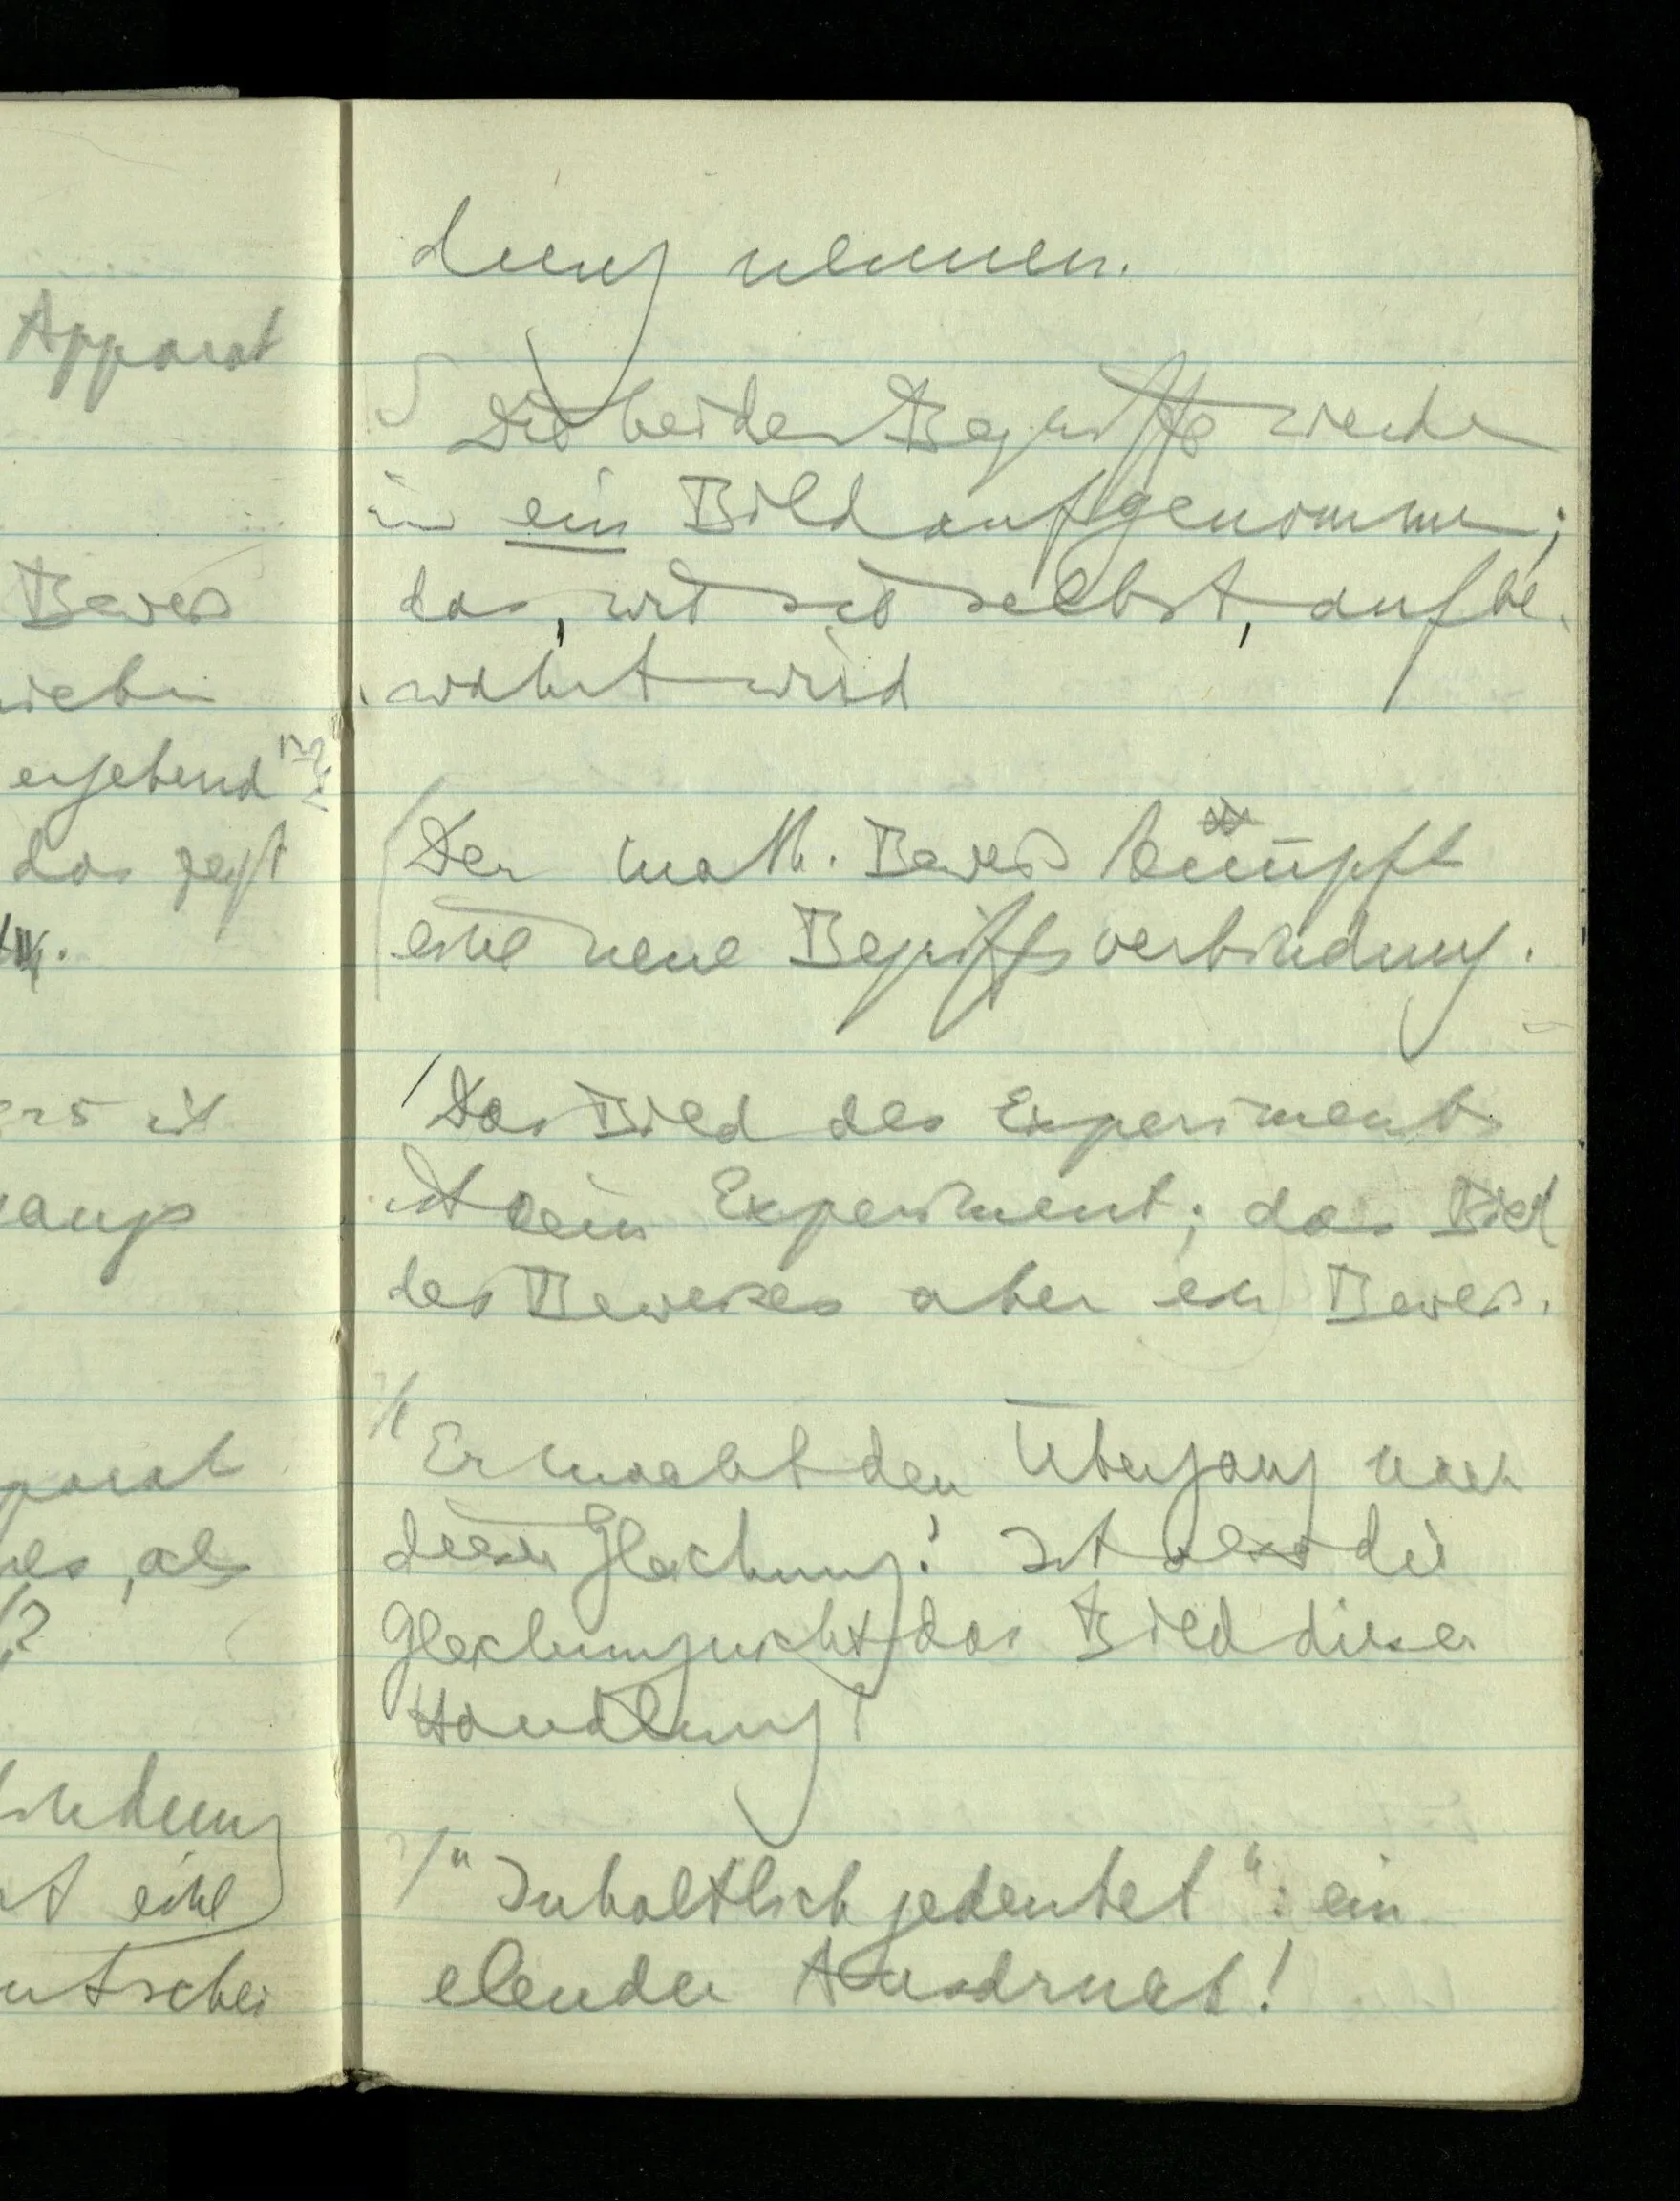 Apparat
Beweis
ergebend
das zeigt
ist
parat
als
?
eine
dung nennen.
S Die beiden Begriffe werden
in ein Bild aufgenommen;
das, wie sie selbst, aufbe-
wahrt wird
/ Der math. Beweis knüpft
eine neue Begriffsverbindung.
/ Das Bild des Experiments
ist kein Experiment; das Bild
des Beweises aber ein Beweis.
Er macht den Übergang nach
dieser Gleichung! Ist also die
Gleichung nicht das Bild dieser
Handlung?
/ "Inhaltlich gedeutet": ein
elender Ausdruck!